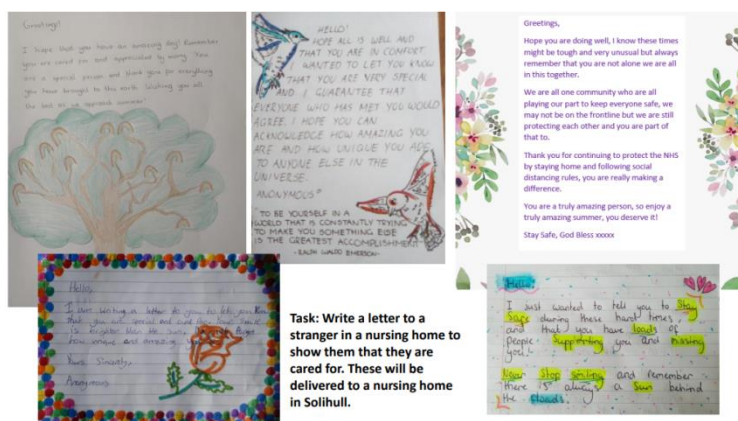 Greetings!
I hope that you have an amazing day! Remember
you are cared for and appreciated by many. You
are a special person and thank you for everything
you have brought to this earth. Wishing you all
the best as we approach summer!
HELLO!
HOPE ALL IS WELL AND
THAT YOU ARE IN COMFORT
WANTED TO LET YOU KNOW
THAT YOU ARE VERY SPECIAL
AND I GUARANTEE THAT
EVERYONE WHO HAS MET YOU WOULD
AGREE. I HOPE YOU CAN
ACKNOWLEDGE HOW AMAZING YOU
ARE AND HOW UNIQUE YOU ARE
TO ANYONE ELSE IN THE
UNIVERSE.
ANONYMOUS
"TO BE YOURSELF IN A
WORLD THAT IS CONSTANTLY TRYING
TO MAKE YOU SOMETHING ELSE
IS THE GREATEST ACCOMPLISHMENT"
- RALPH WALDO EMERSON -
Greetings,
Hope you are doing well, I know these times
might be tough and very unusual but always
remember that you are not alone we are all
in this together.
We are all one community who are all
playing our part to keep everyone safe, we
may not be on the frontline but we are still
protecting each other and you are part of
that to.
Thank you for continuing to protect the NHS
by staying home and following social
distancing rules, you are really making a
difference.
You are a truly amazing person, so enjoy a
truly amazing summer, you deserve it!
Stay Safe, God Bless xxxxx
Hello,
I am writing a letter to you to let you know
that you are special and
is brighter than the forget
how unique and amazing
Yours Sincerely,
Anonymous
Task: Write a letter to a
stranger in a nursing home to
show them that they are
cared for. These will be
delivered to a nursing home
in Solihull.
Hello,
I just wanted to tell you to Stay
Safe during these hard times
and that you have loads of
people Supporting you and missing
you!
Never Stop smiling and remember
there is always a Sun behind
the clouds.